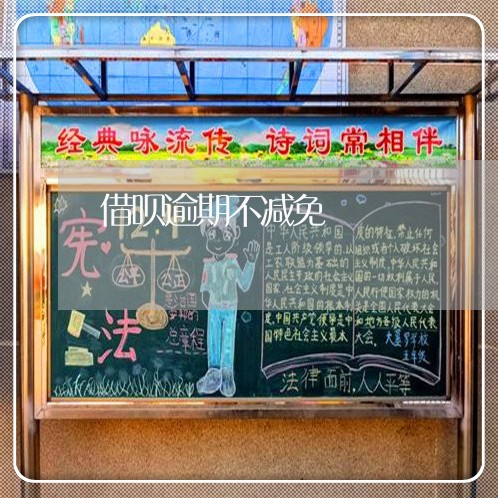 经典咏流传 诗词常相伴
借呗逾期不减免
12.4
宪法
公平
公正
总章程
中华人民共和国
是工人阶级领导的,以
工农联盟为基础的
人民民主专政的社会主义
国家,社会主义制度是中
华人民共和国的根本制
度,中国共产党领导是中
国特色社会主义最本
质的特征,禁止任何
组织或者个人破坏社会
主义制度,中华人民共和
国的一切权利属于人民,
人民行使国家权力的机
关是全国人民代表大会
和地方各级人民代表
大会.
五年级
法律面前,人人平等